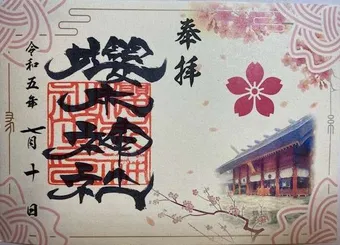 奉拝
櫻木神社
令和五年七月十日